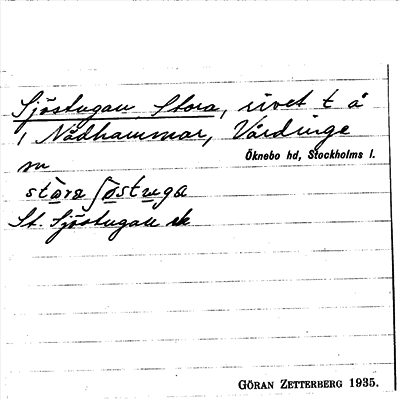 Sjöstugan Stora, rivet t å
i Nådhammar, Vårdinge
Öknebo hd, Stockholms l.
m
St. Sjöstugan ek
GÖRAN ZETTERBERG 1935.